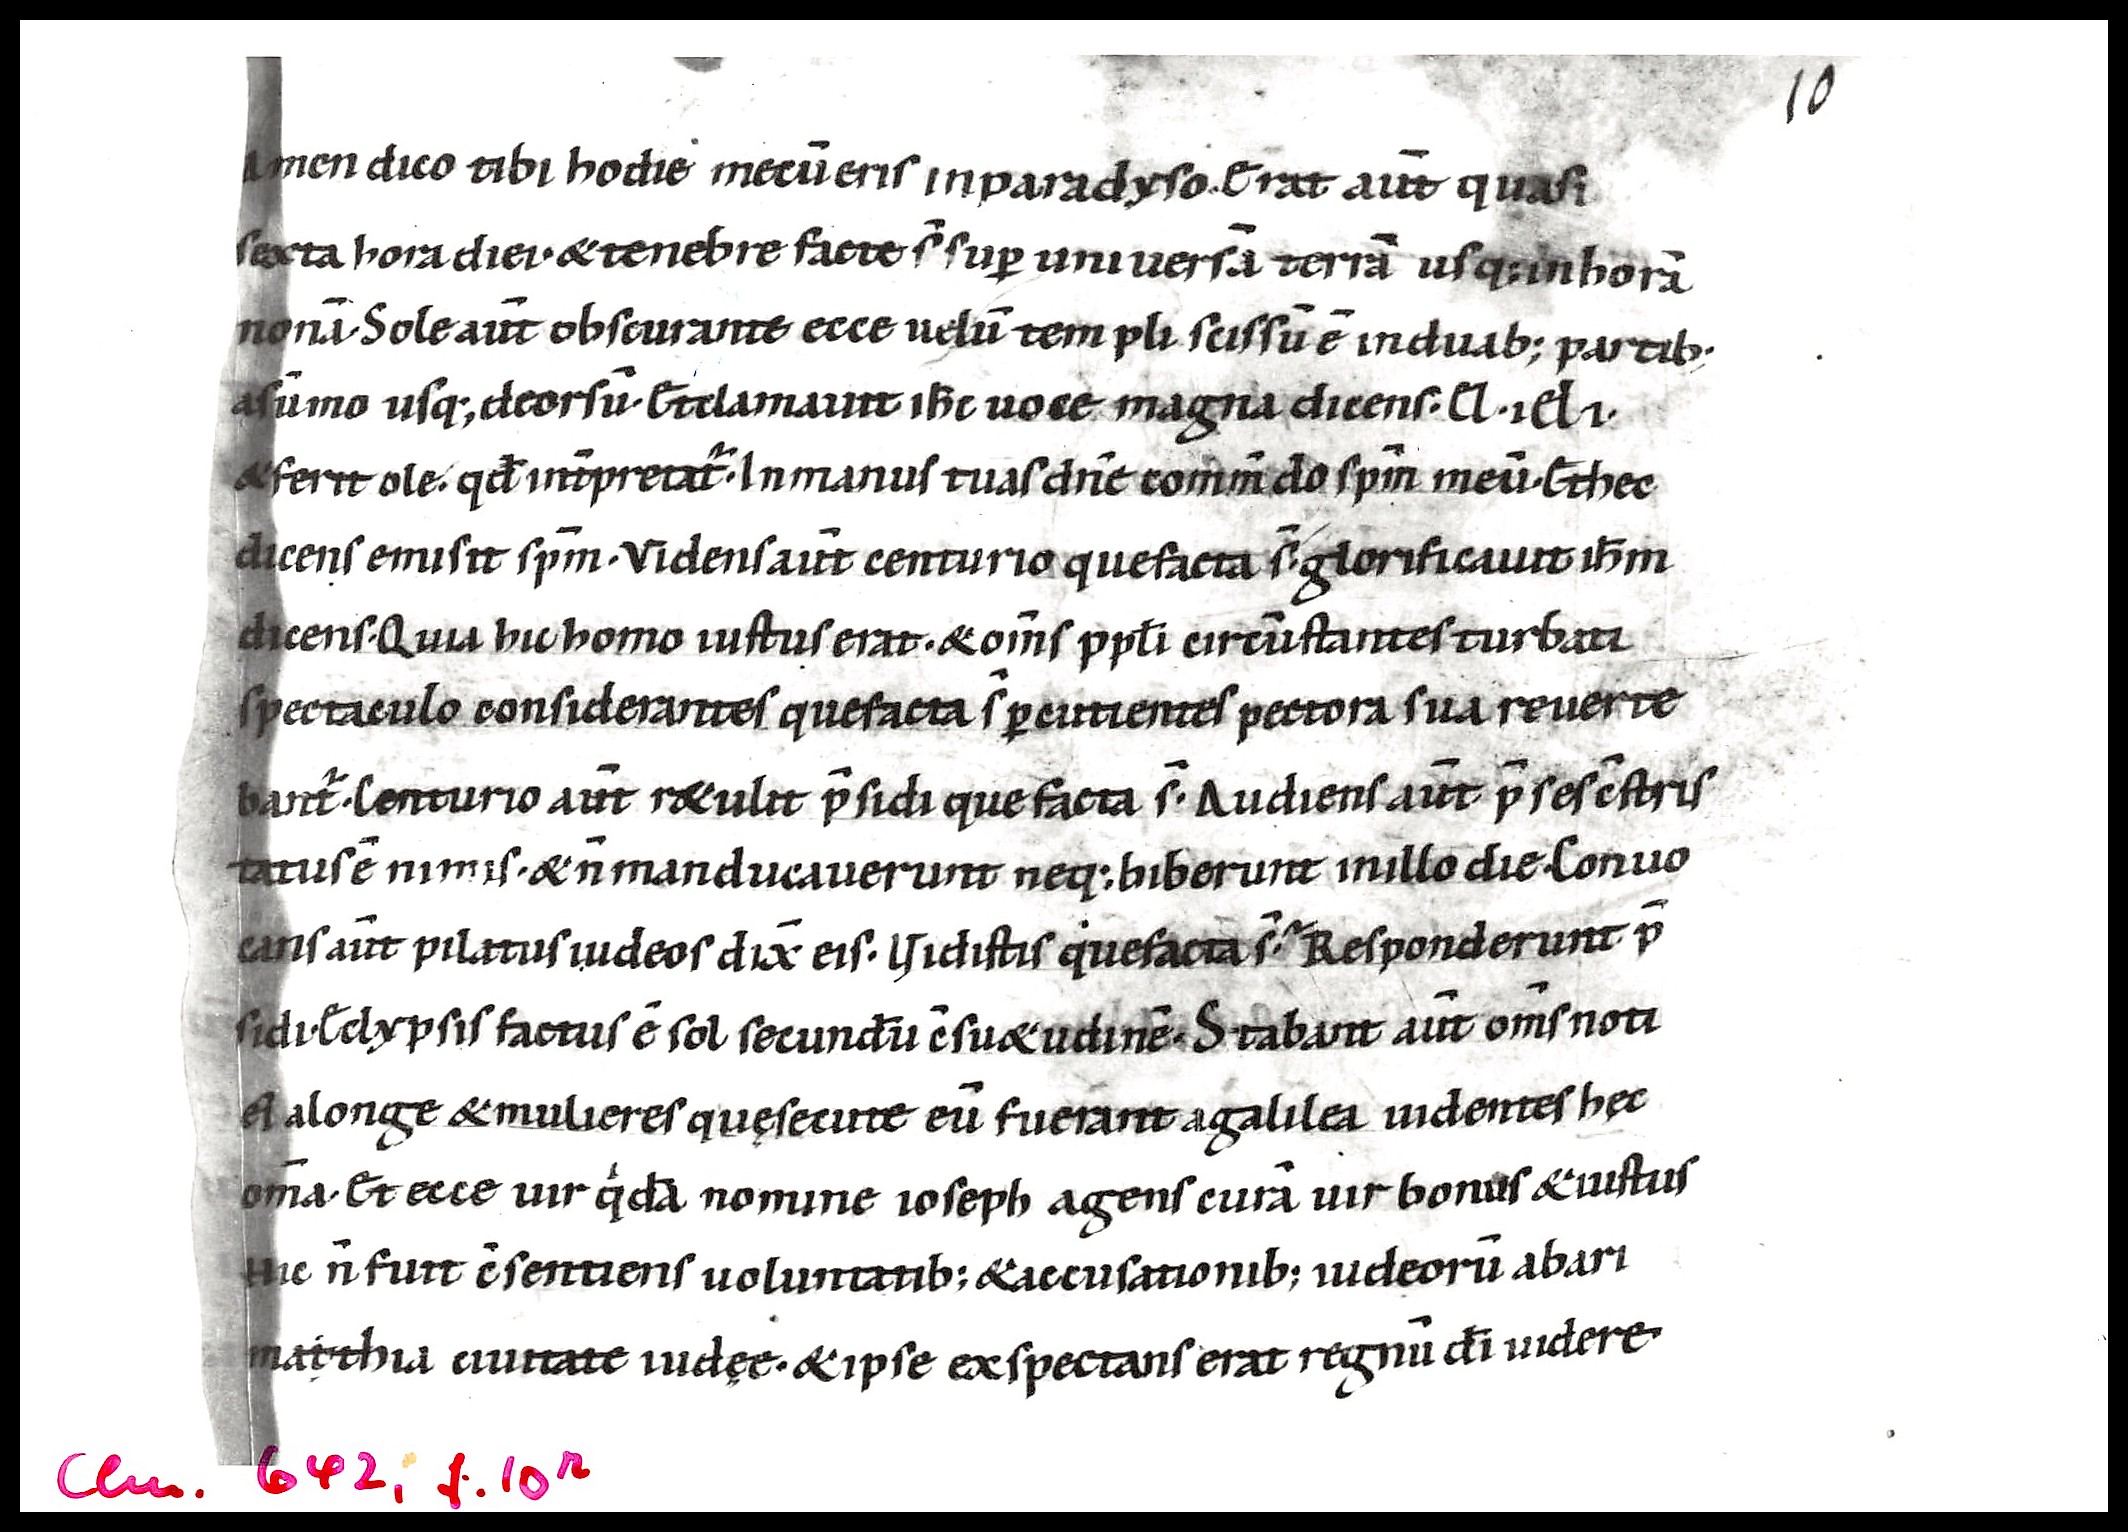 10
Amen dico tibi hodie mecū eris in paradyso. Erat aūt quasi
sexta hora diei. & tenebre facte s̄ suꝑ uniuersā terrā usq; in horā
nonā. Sole aūt obscurante ecce uelū templi scissū ē induab; partib;
asūmo usq; deorsū. Et clamauit ih̄c uoce magna dicens. El.i El i.
& ferit ole. qđ int̄pretat̄. In manus tuas dn̄e com̄m̄do sp̄m meū. Et hec
dicens emisit sp̄m. Videns aūt centurio que facta s̄. glorificauit ih̄m
dicens. Quia hic homo iustus erat. & om̄s ppl̄i circūstantes turbati
spectaculo considerantes que facta s̄ ꝑcutientes pectora sua reuerte
bant̄. Centurio aūt r&ulit p̄sidi que facta s̄. Audiens aūt p̄ses c̄stris
tatus ē nimis. & n̄ manducauerunt neq; biberunt in illo die. Conuo
cans aūt pilatus iudeos dix̄ eis. Vidistis que facta s̄. Responderunt p̄
sidi. Eclypsis factus ē sol secundū c̄su&udinē. Stabant aūt om̄s noti
ei alonge & mulieres quę secute eū fuerant agalilea uidentes hęc
om̄a. Et ecce uir qͥdā nomine ioseph agens curā uir bonus & iustus
Hic n̄ fuit c̄sentiens uoluntatib; & accusationib; iudeorū abari
mathia ciuitate iudęe. & ipse exspectans erat regnū dī uidere.
Clm. 642, f. 10r